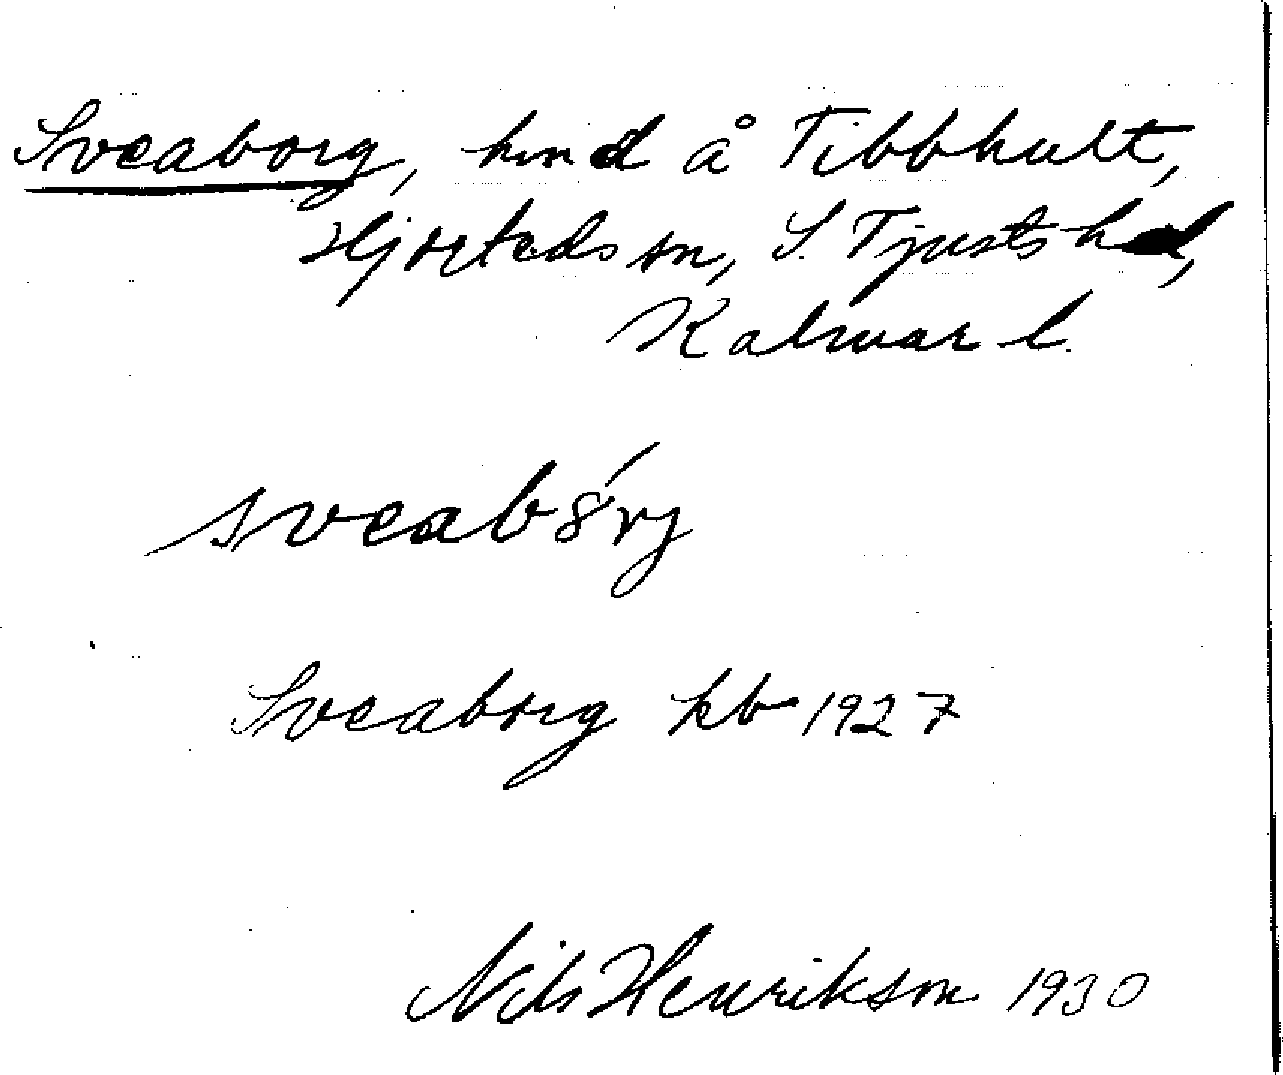 Sveaborg, hmd å Tibbhult,
Hjorteds sn, S. Tjusts hd,
Kalmar l.
sveab8́rj
Sveaborg kb 1927
Nils Henrikson 1930